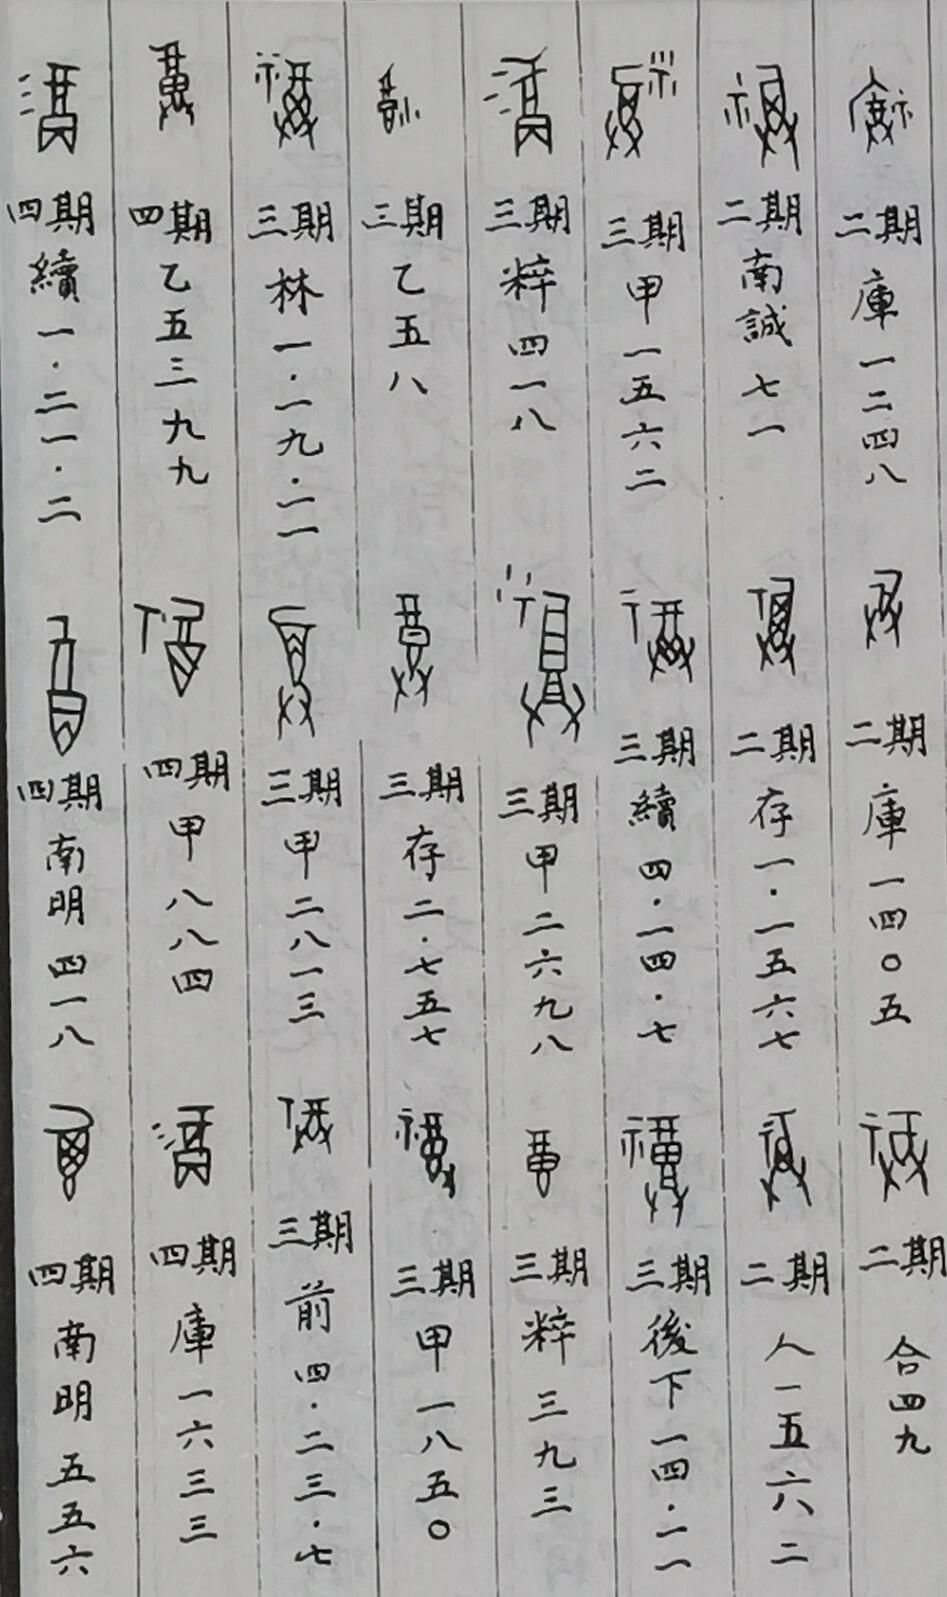 二期 庫一二四八 二期 庫一四〇五 二期 合四九
二期 南誠七一 二期 存一·一五六七 二期 人一五六二
三期 甲一五六二 三期 續四·一四·七 三期 後下一四·一一
三期 粹四一八 三期 甲二六九八 三期 粹三九三
三期 乙五八 三期 存二·七五七 三期 甲一八五〇
三期 林一·一九·一一 三期 甲二八一三 三期 前四·二三·七
四期 乙五三九九 四期 甲八八四 四期 庫一六三三
四期 續一·二一·二 四期 南明四一八 四期 南明五五六